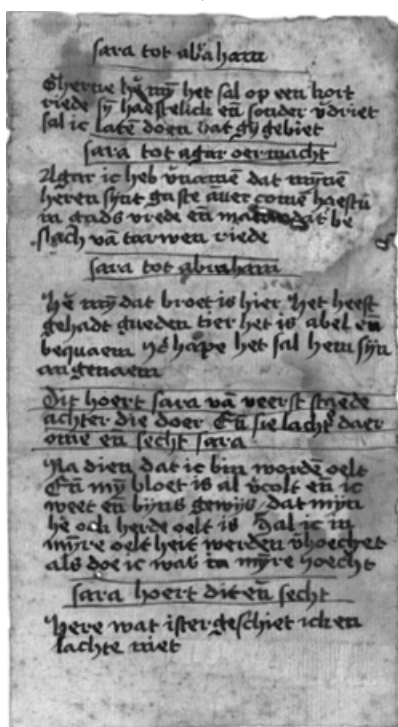 sara tot abrāham
Gherne hē mỹ het sal op een kort
riede sỹ haestelick eñ sonder v̄driet
sal ic laten doen dat gy gebiet
sara tot agar oer macht
Agar ic heb v̄namē dat mynē
heren synt gaste aūer comē haestu
in gads vrede eñ dat be
slach vā tarwen riede
sara tot abraham
hē mỹ dat broet is hier het heeft
gehadt gueden tier het is abel eñ
bequaem ic hape het sal hem sijn
angenaem
Dit hoert sara vā veerst staede
achter die doer Eñ sie lacht daer
ome en secht sara
Na dien dat ic bin wordē oelt
Eñ mỹ bloet is al v̄colt eñ ic
weet eñ byns gewijs dat mijn
hē ock herde oelt is Sal ic in
mỹre oelt heit werden v̄hoechet
als doe ic was in mỹre hoecht
sara hoert dit eñ secht
Here wat ister geschiet ick en
lachte niet